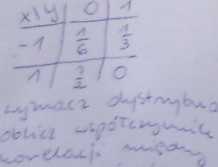 x\y | 0 | 1
-1 | 1/6 | 1/3
1 | 1/2 | 0
wyznacz dystrybua
oblicz współczynnik
korelacji między